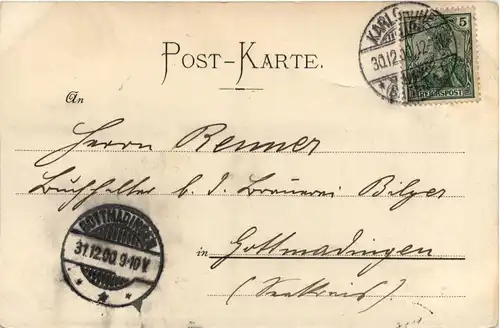 KARLSRUHE
30.12.
5
REICHSPOST
POST-KARTE.
An
Herrn Renner
Buchhalter b. d. Brauerei Bilger
in Gottmadingen
(Seekreis).
GOTTMADINGEN
31.12.00. 9-10 V